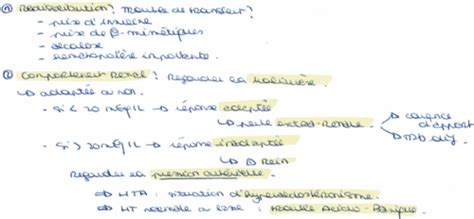 ① Redistribution? Trouble de transfert?
- prise d'insuline
- prise de β-mimétiques
- alcalose
- importante
② Comportement Rénal? Regarder la kaliurèse
↳ adaptée ou non.
- Si < 20 mEq/L → réponse adaptée
↳ perte extra-rénale → carence d'apport
→ TB dig
- Si > 20 mEq/L → réponse inadaptée
↳ ∅ Rein
Regarder la pression artérielle
⇒ HTA : situation d'hyperaldostéronisme.
⇒ HT normale ou basse : trouble Acido-Basique